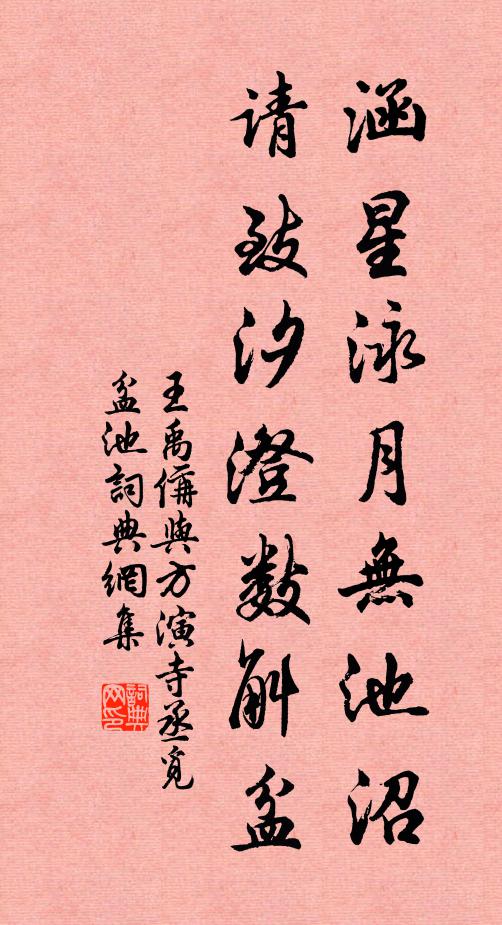 涵星泳月無池沼
请致汐澄数斛盆
王禹偁與方演寺丞覓
盆池詞典網集
詞典网印